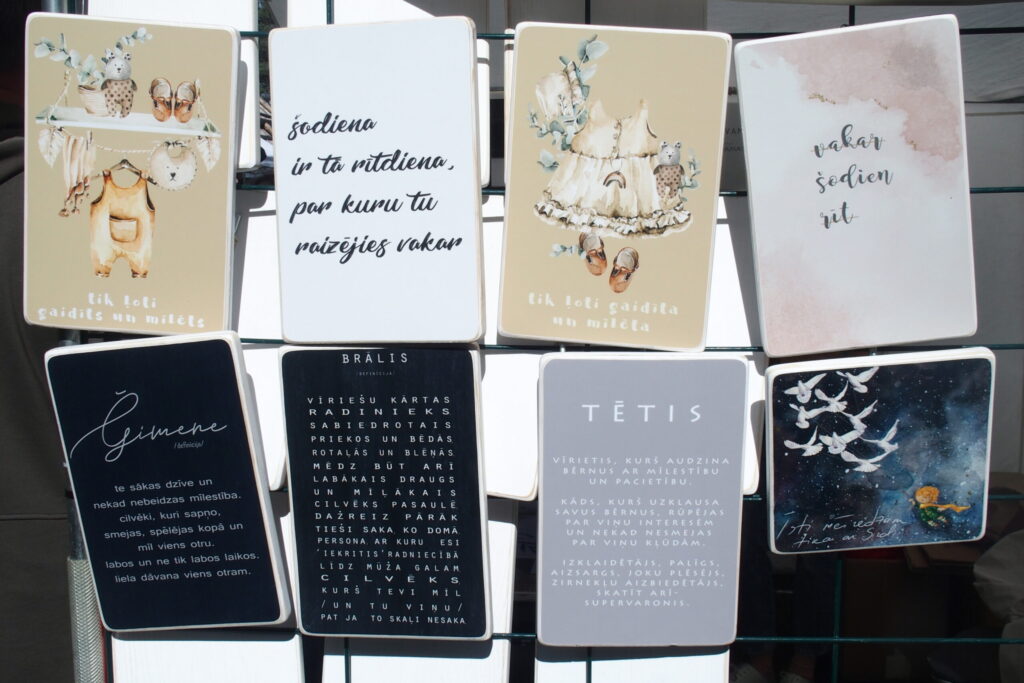 tik ļoti
gaidīts un mīlēts
šodiena
ir tā rītdiena,
par kuru tu
raizējies vakar
tik ļoti gaidīta
un mīlēta
vakar
šodien
rīt
Ģimene
/definīcija/
te sākas dzīve un
nekad nebeidzas mīlestība.
cilvēki, kuri sapņo,
smejas, spēlējas kopā un
mīl viens otru.
labos un ne tik labos laikos.
liela dāvana viens otram.
BRĀLIS
/DEFINĪCIJA/
VĪRIEŠU KĀRTAS
RADINIEKS
SABIEDROTAIS
PRIEKOS UN BĒDĀS
ROTAĻĀS UN BLĒŅĀS
MĒDZ BŪT ARĪ
LABĀKAIS DRAUGS
UN MĪĻĀKAIS
CILVĒKS PASAULĒ
DAŽREIZ PĀRĀK
TIEŠI SAKA KO DOMĀ
PERSONA AR KURU ESI
'IEKRITIS' RADNIECĪBĀ
LĪDZ MŪŽA GALAM
CILVĒKS
KURŠ TEVI MĪL
/UN TU VIŅU/
PAT JA TO SKAĻI NESAKA
TĒTIS
VĪRIETIS, KURŠ AUDZINA
BĒRNUS AR MĪLESTĪBU
UN PACIETĪBU.
KĀDS, KURŠ UZKLAUSA
SAVUS BĒRNUS, RŪPĒJAS
PAR VIŅU INTERESĒM
UN NEKAD NESMEJAS
PAR VIŅU KĻŪDĀM.
IZKLAIDĒTĀJS, PALĪGS,
AIZSARGS, JOKU PLĒSĒJS,
ZIRNEKĻU AIZBIEDĒTĀJS,
SKATĪT ARĪ-
SUPERVARONIS.
Īsti mēs redzam
tikai ar Sirdi